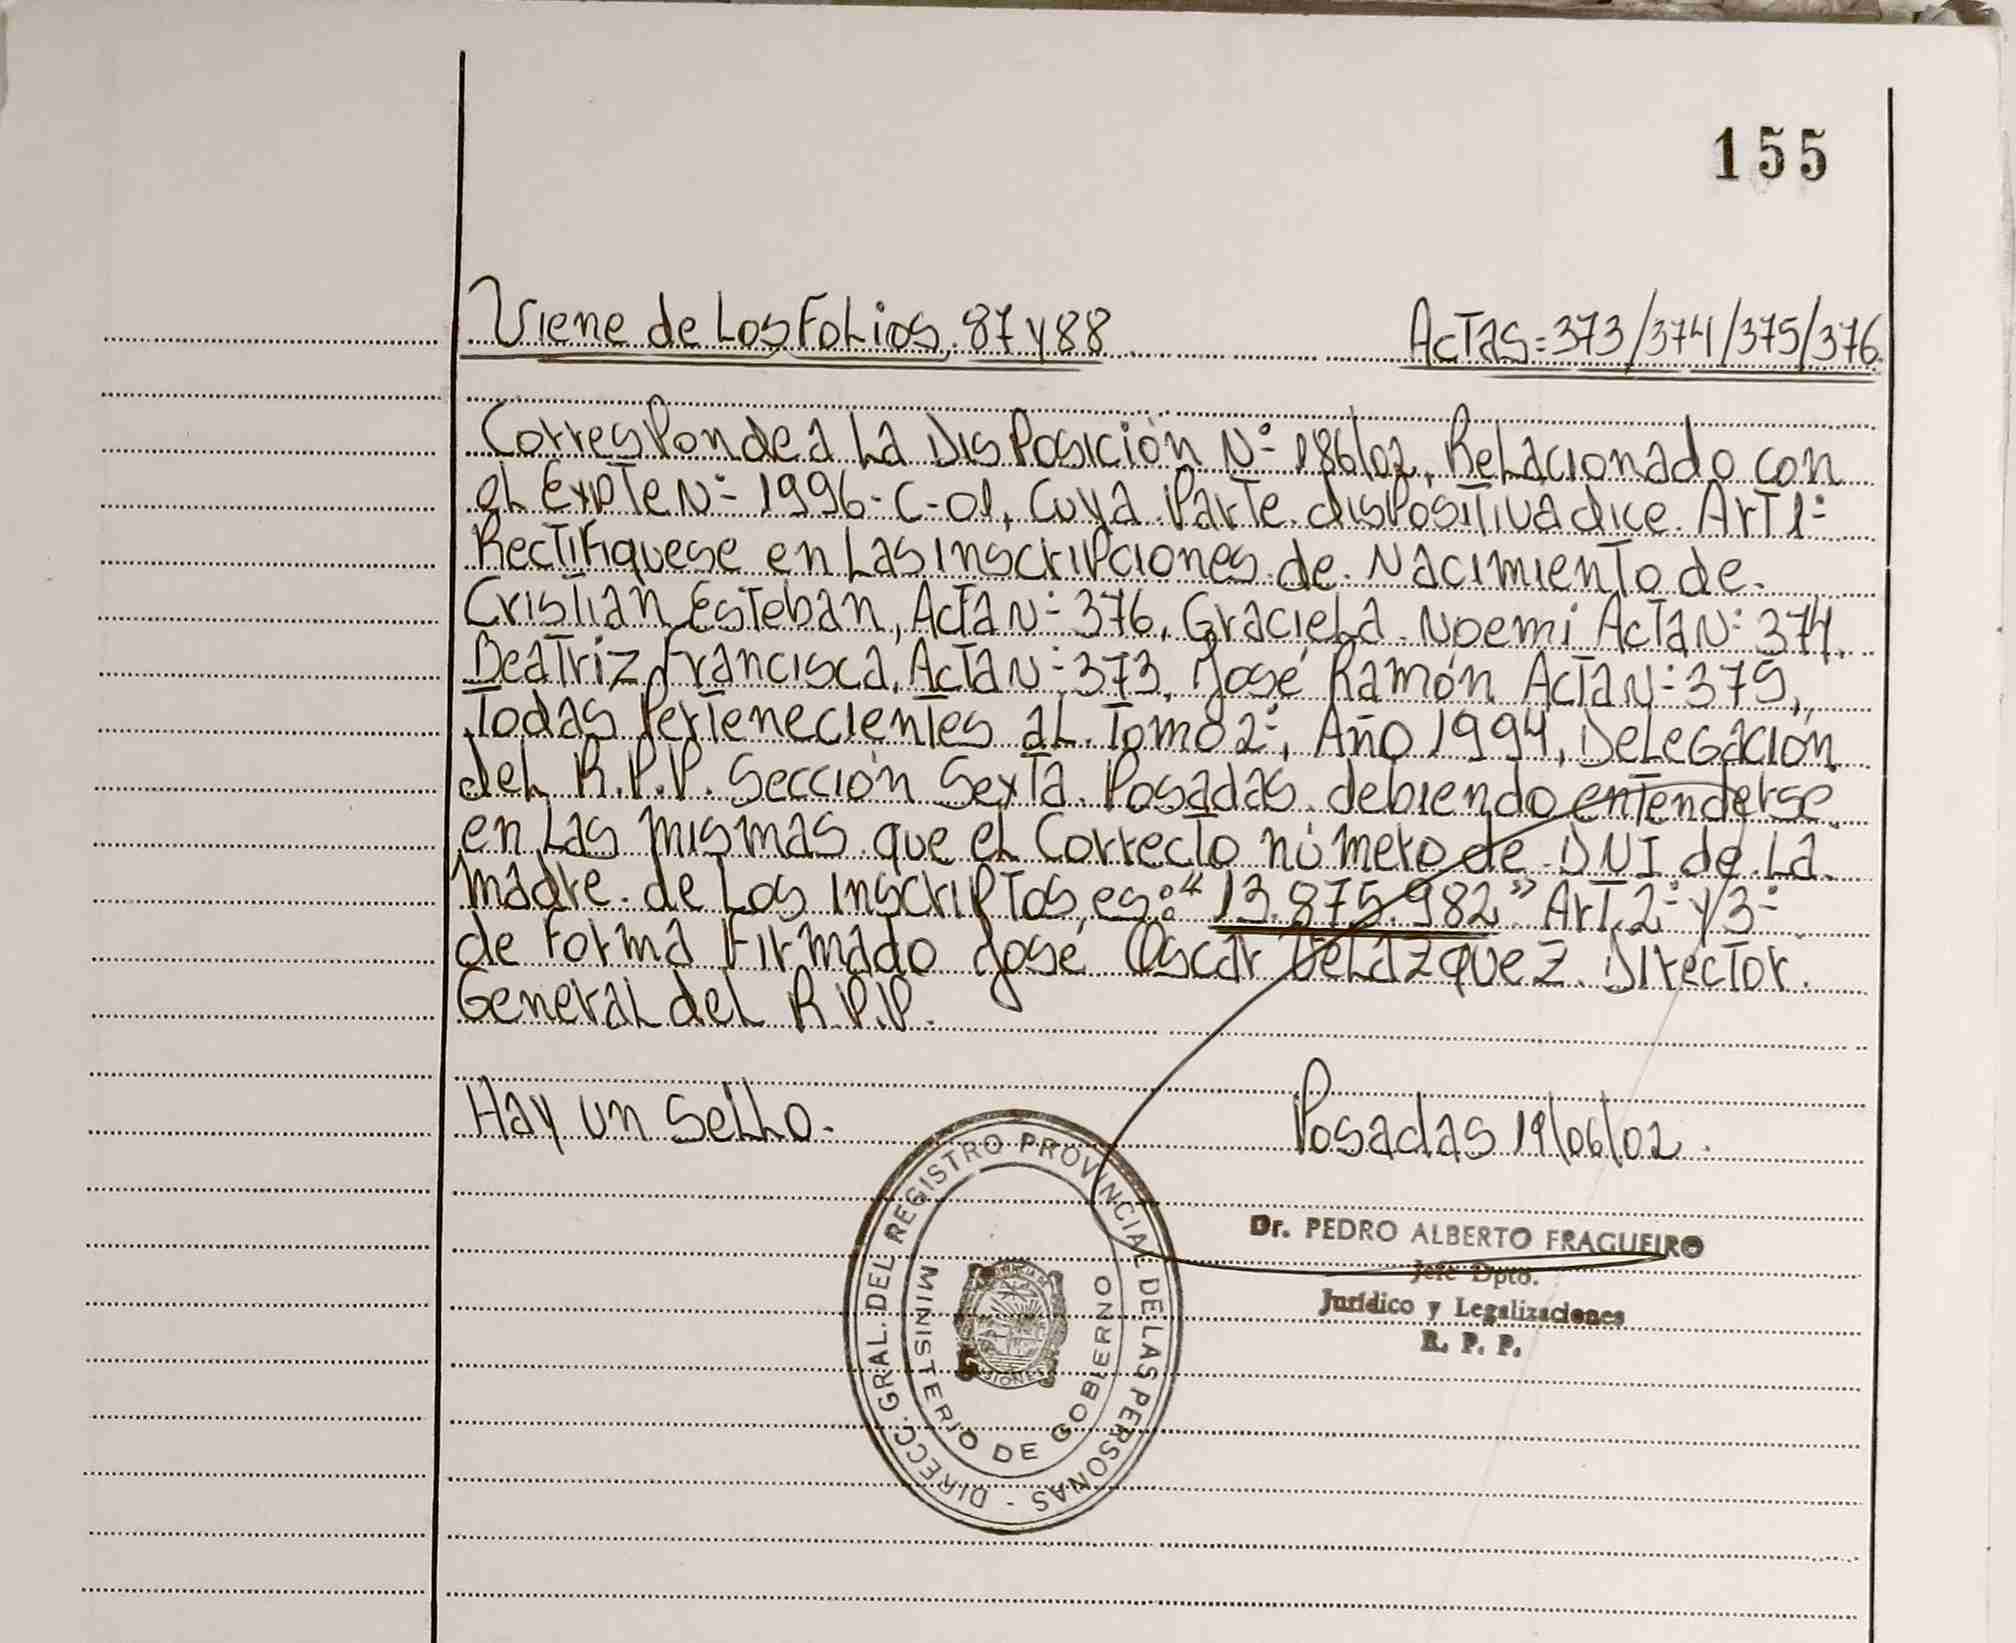 155
Viene de Los Folios. 87 y 88 Actas = 373/374/375/376.
Corresponde a La Disposición Nº 186/02, Relacionado con
el Expte Nº 1996-C-01, Cuya Parte dispositiva dice. Art 1º
Rectifiquese en Las inscripciones de Nacimiento de.
Cristian Esteban, Acta Nº 376, Graciela Noemi Acta Nº 374.
Beatriz Francisca, Acta Nº 373, José Ramón Acta Nº 375,
Todas Pertenecientes al Tomo 2º, Año 1994, Delegación
del R.P.P. Sección Sexta Posadas debiendo entenderse
en Las mismas que el Correcto número de DNI de La
madre de Los inscriptos, es: "13.875.982" Art. 2º y 3º
de Forma Firmado José Oscar Velazquez. Director.
General del R.P.P.
Hay un Sello. Posadas 19/06/02.
DIRECC. GRAL. DEL REGISTRO PROVINCIAL DE LAS PERSONAS -
MINISTERIO DE GOBIERNO
Dr. PEDRO ALBERTO FRAGUEIRO
Jefe Dpto.
Jurídico y Legalizaciones
R. P. P.